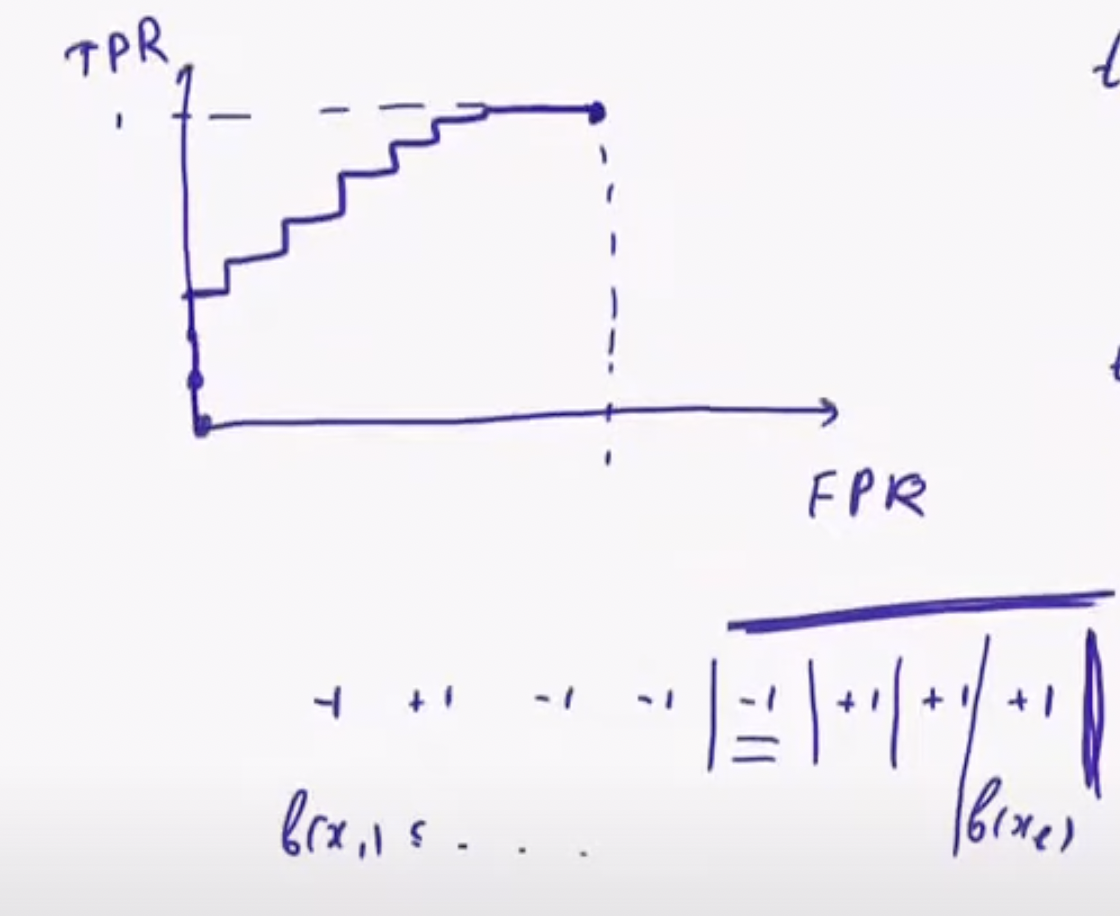 TPR
1
FPR
-1 +1 -1 -1 | -1 | +1 | +1 / +1 |
b(x₁) ≤ . . . b(xₗ)